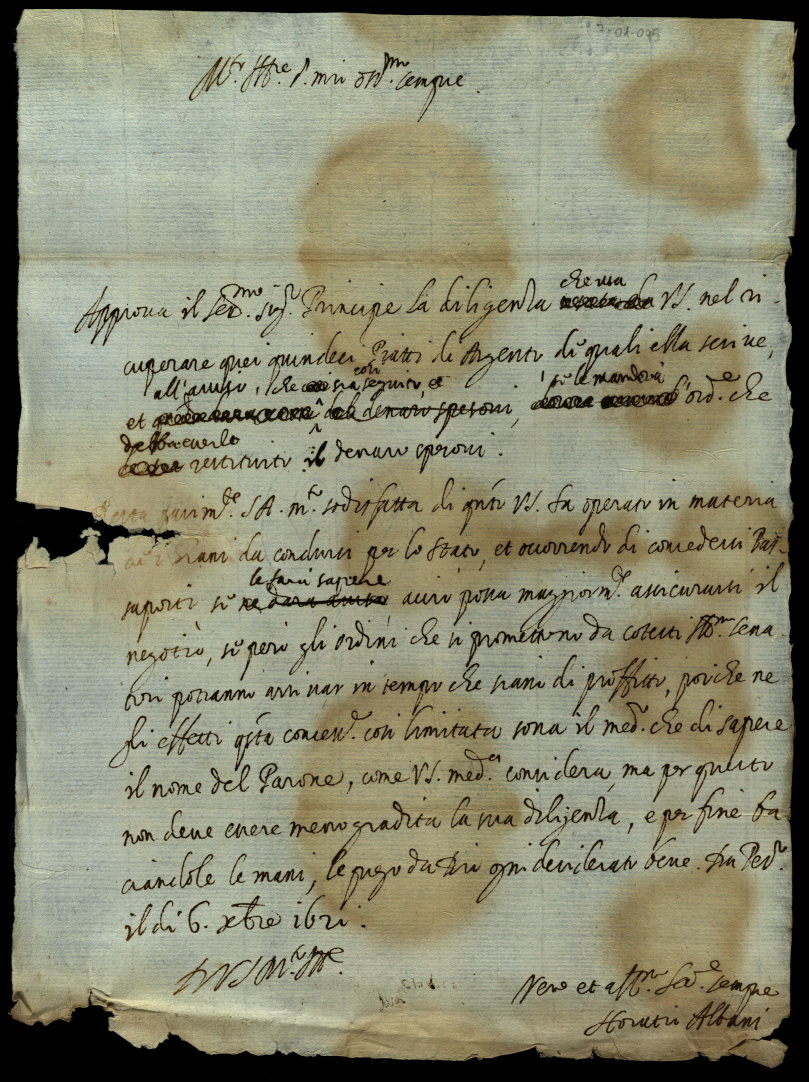 7-01-095
M.to Ill.re S.r mio oss.mo sempre.
che usa
Approva il Ser.mo Sig.r Principe la diligenza VS. nel ri-
cuperare quei quindeci Piatti di Argento di quali ella scrive,
all'avviso, che sia seguito così se le manderà
et del denaro spesovi, l'ord.e che
debba esserle
restituito il denaro spesovi.
Resta parim.te S.A. m.to sodisfatta di q.nto VS. ha operato in materia
de i Grani da condursi per lo Stato, et occorrendo di concedersi Pas-
le farà sapere
saporti se ne darà aviso acciò possa maggiorm.te assicurarsi il
negotio, se però gli ordini che si promettono da cotesti Ill.mi Sena-
tori potranno arrivar in tempo che siano di proffitto, poiche ne
gli effetti q.sta concess.e così limitata sona il med.o che di sapere
il nome del Parone, come VS. med.a considera, ma per questo
non deve essere meno gradita la sua diligenza, e per fine ba-
ciandole le mani, le prego da Dio ogni desiderato bene. Da Pes.o
il di 6. xbre 1621.
D VS M.to Ill.re
Vero et aff.mo Ser.e sempre
Horatio Albani